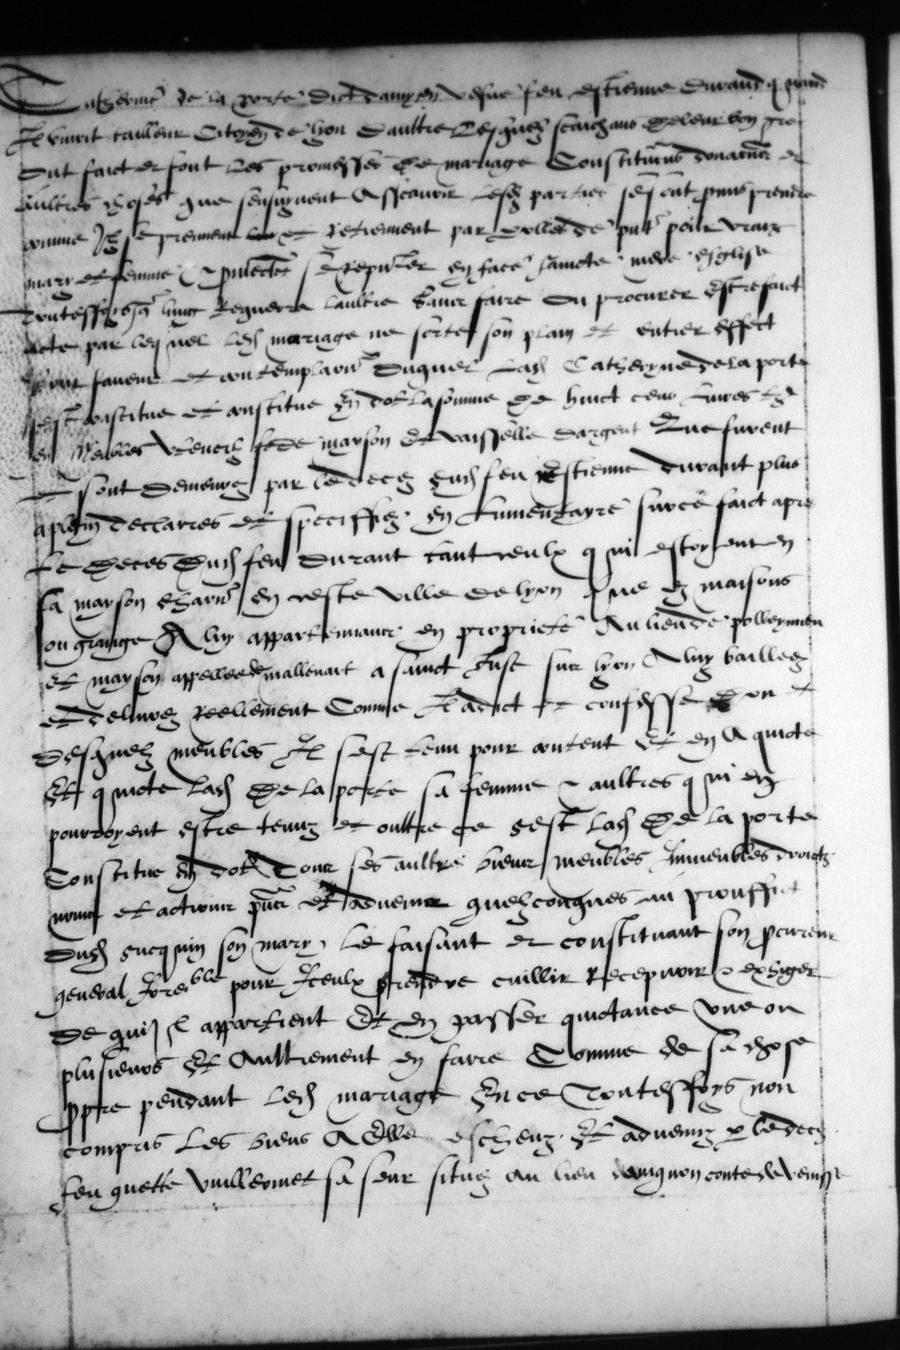 Catherine de la porte dict damyen vefve feu estienne durand quand
vivoit tailleur Citoyen de lyon daultre Lesquelz scaichans de leur bon gre
ont faict et font les promesses de mariage Constitutions donations et
aultres choses que sensuyvent Assavoir lesd parties se sont promis prendre
comme Ilz se prennent et Retiennent par
mary et femme en face saincte mere esglise
Touteffoys lung Requerra laultre sans faire ou procurer estre faict
acte par lequel led mariage ne sorte son plain et entier effect
pour faveur et contemplation duquel lad Catheryne de la porte
sest constitue et constitue En dot la somme de huict cens livres tz
en Meubles de mayson et vaisselle dargent Que furent
et sont demeurez par le decez dud feu Estienne durant plus
aplein declaires et speciffiez En Linventayre surce faict apres
Le deces dud feu durant tant ceulx qui estoyent en
sa mayson en ceste ville de lyon que es maisons
ou grange A luy appartenant en propriete Au lieu de polleymieu
et mayson appellee de mallevart a sainct Just sur lyon A luy baillez
et delivrez reellement Comme Il a dict et confesse et
Desquelz meubles Il sest tenu pour content Et en A quicte
Et quicte lad De la porte sa femme et aultres qui en
pourroyent estre tenuz et oultre ce sest lad De la porte
Constitue En dot Tous ses aultres biens meubles Immeubles droictz
noms et actions pns et advenir quelzconques au prouffict
Dud Jucquin son mary Le faisant et constituant son procureur
general Irrevoble pour Iceulx prendre cuillir Recepvoir et exhiger
De qui Il appartient Et En passer quictance une ou
plusieurs Et Aultrement en faire Comme de sa chose
ppre pendant led mariage En ce Touteffoys non
compris Les biens A Elle escheuz Et advenuz p le decez
feu guette vuillermet sa seur situez au lieu davignon conte de veniss